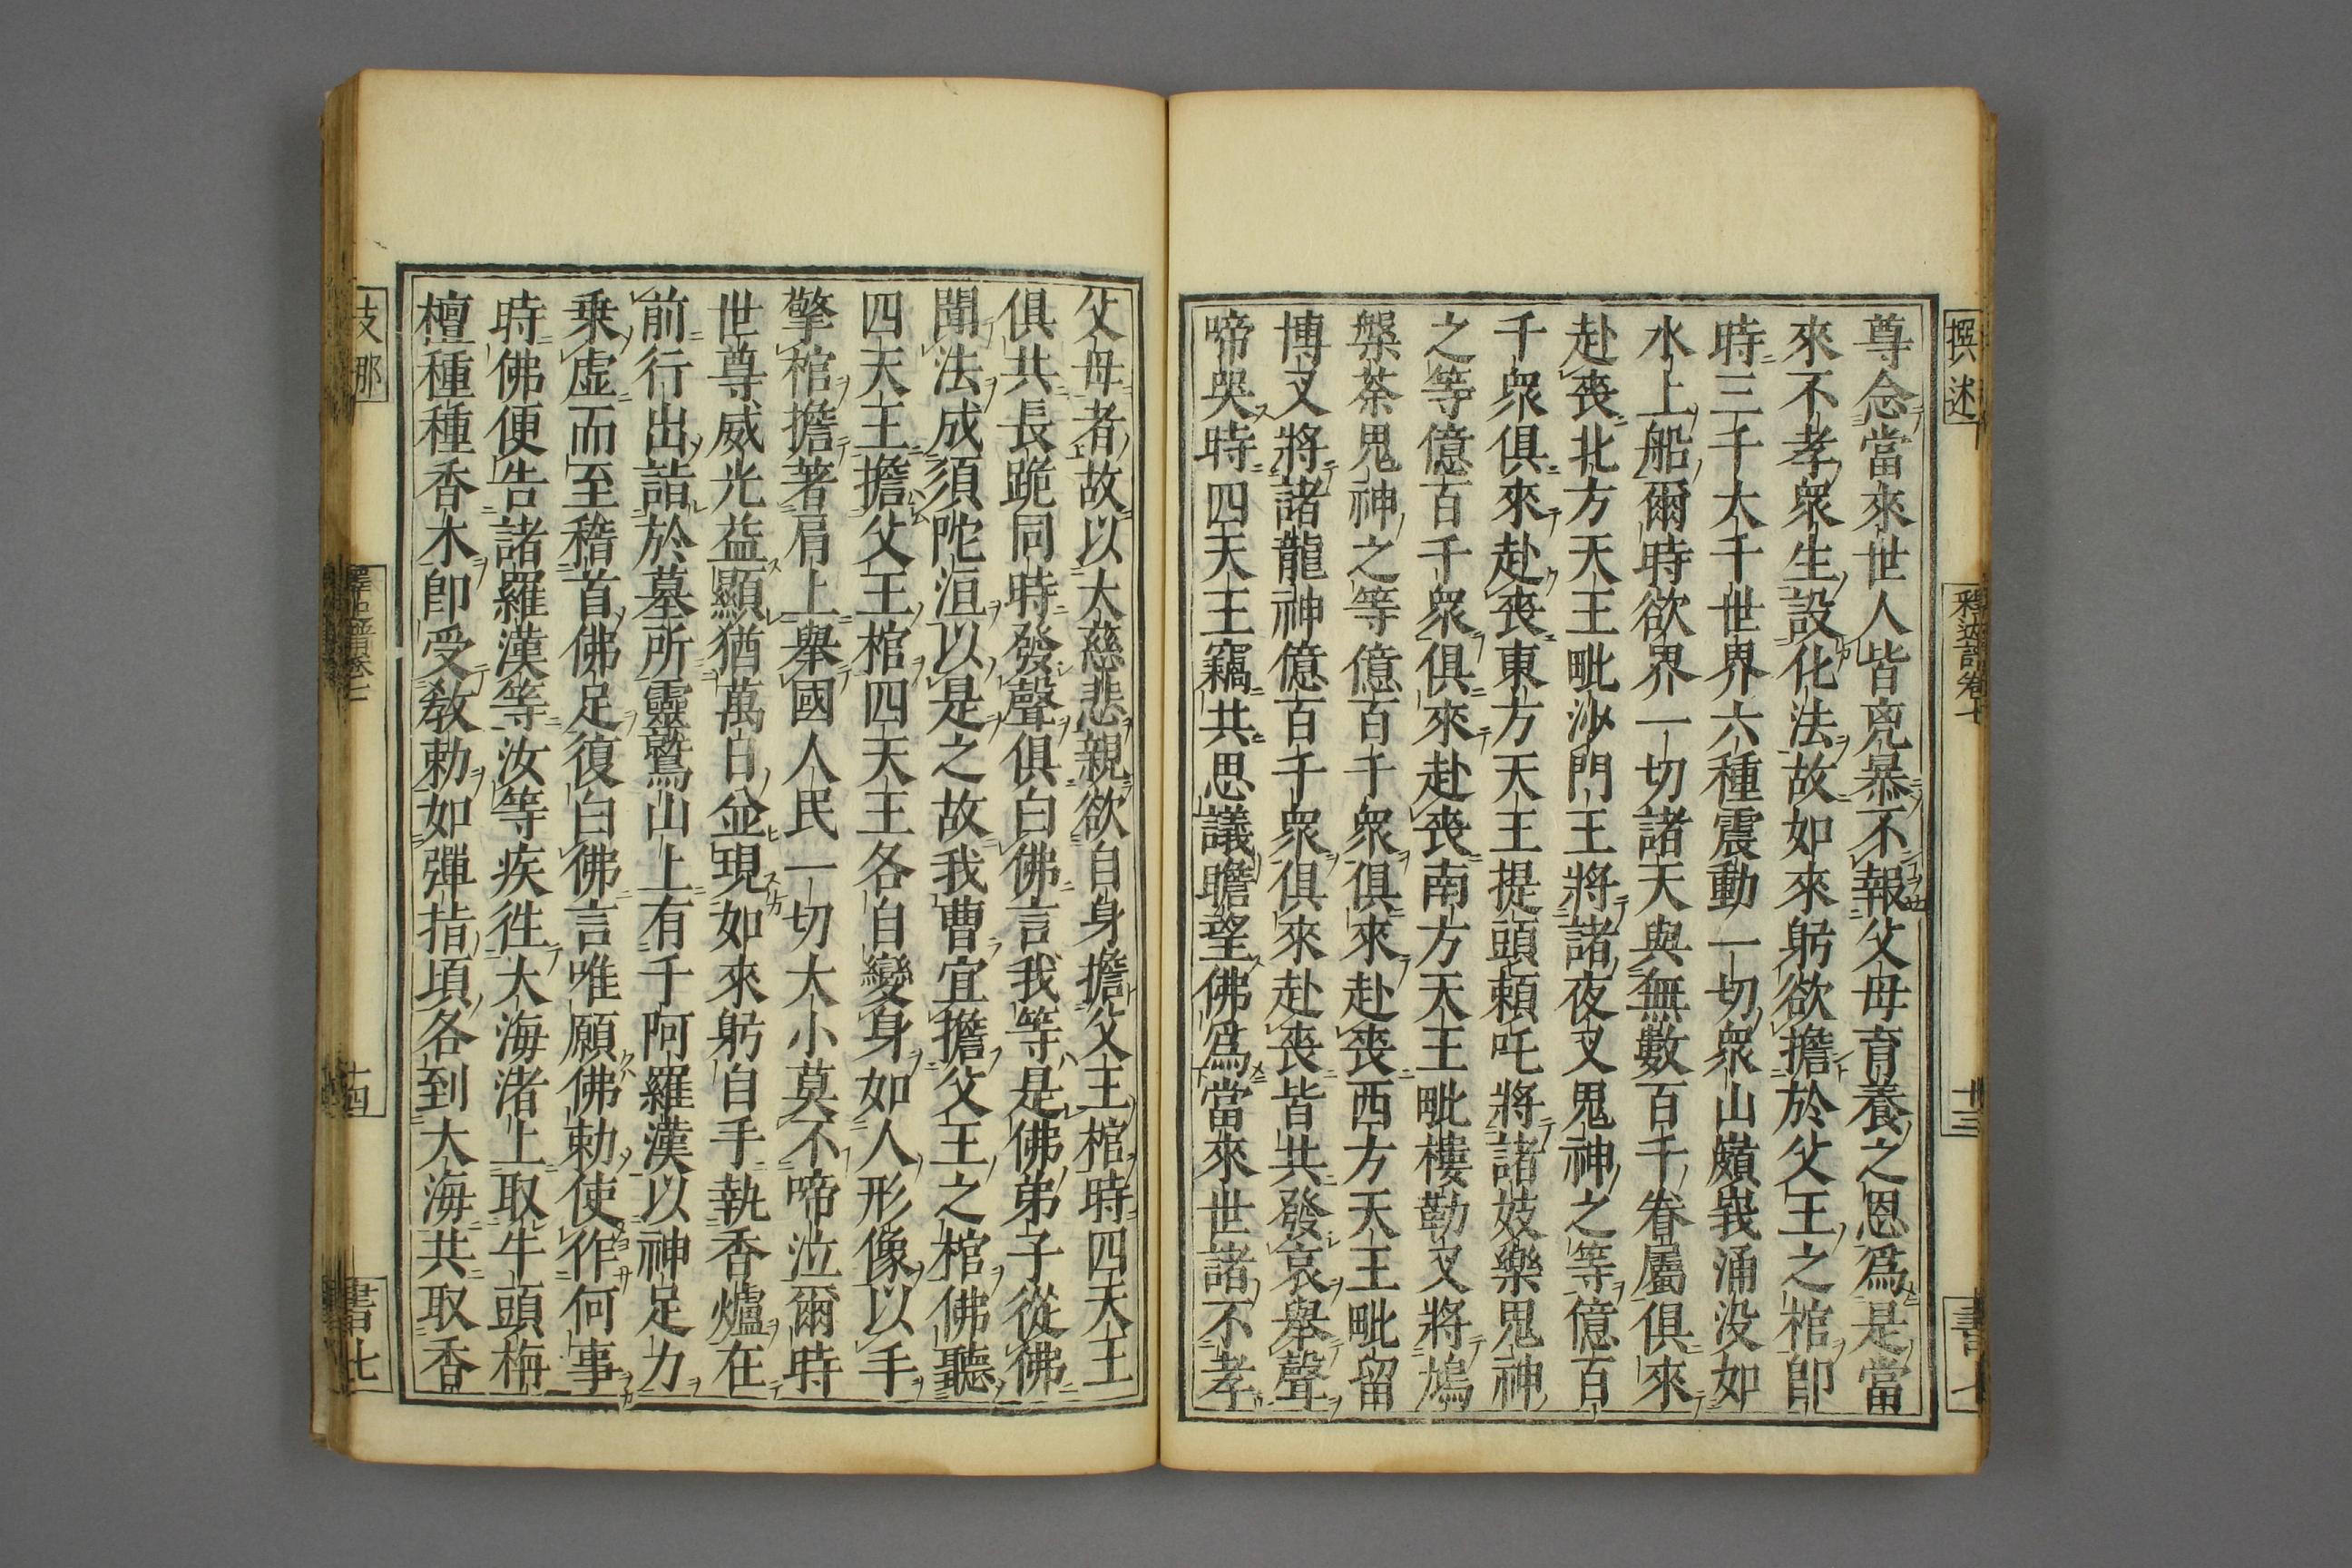 撰述
釋迦譜卷七
十三
書七
尊念當來世人皆兇暴不報父母育養之恩爲是當
來不孝衆生設化法故如來躬欲擔於父王之棺即
時三千大千世界六種震動一切衆山𡽗峩涌没如
水上船爾時欲界一切諸天與無數百千眷屬俱來
赴喪北方天王毗沙門王將諸夜叉鬼神之等億百
千衆俱來赴喪東方天王提頭頼吒將諸妓樂鬼神
之等億百千衆俱來赴喪南方天王毗樓勒叉將鳩
槃茶鬼神之等億百千衆俱來赴喪西方天王毗留
博叉將諸龍神億百千衆俱來赴喪皆共發哀舉聲
啼哭時四天王竊共思議瞻望佛爲當來世諸不孝
父母者故以大慈悲親欲自身擔父王棺時四天王
俱共長跪同時發聲俱白佛言我等是佛弟子從佛
聞法成須陀洹以是之故我曹宜擔父王之棺佛聽
四天王擔父王棺四天王各自變身如人形像以手
擎棺擔著肩上舉國人民一切大小莫不啼泣爾時
世尊威光益顯猶萬日並現如來躬自手執香爐在
前行出詣於墓所靈鷲山上有千阿羅漢以神足力
乗虛而至稽首佛足復白佛言唯願佛勅使作何事
時佛便告諸羅漢等汝等疾徃大海渚上取牛頭栴
檀種種香木即受敎勅如彈指頃各到大海共取香
支那
釋迦譜卷七
十四
書七